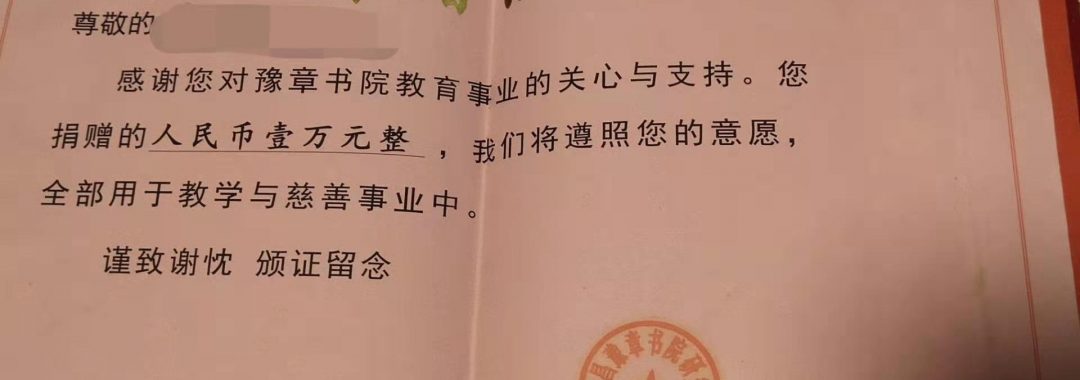 尊敬的
感谢您对豫章书院教育事业的关心与支持。您
捐赠的人民币壹万元整，我们将遵照您的意愿，
全部用于教学与慈善事业中。
谨致谢忱 颁证留念
昌豫章书院研